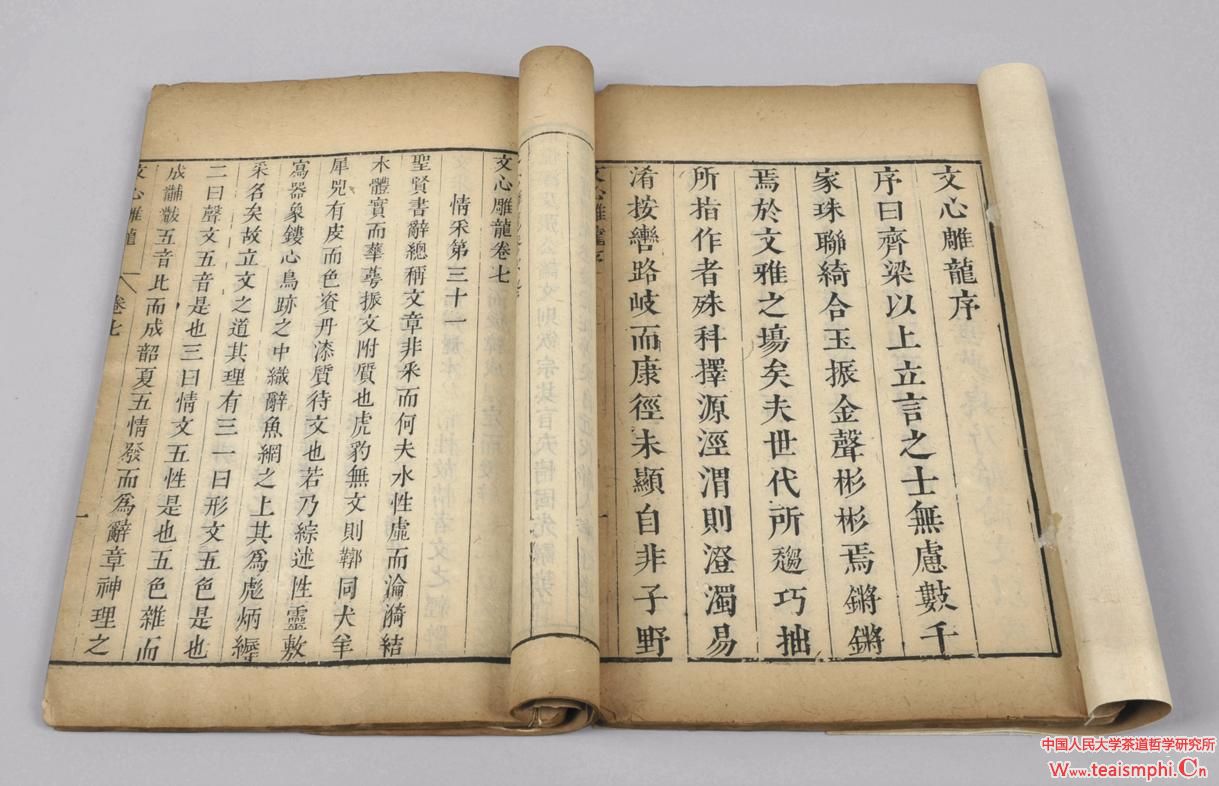 文心雕龍序
序曰齊梁以上立言之士無慮數千
家珠聯綺合玉振金聲彬彬焉鏘鏘
焉於文雅之塲矣夫世代所趨巧拙
所指作者殊科擇源涇渭則澄濁易
淆按轡路岐而康徑未顯自非子野
文心雕龍序
文心雕龍卷七
情采第三十一
聖賢書辭總稱文章非采而何夫水性虛而淪漪結
木體實而華萼振文附質也虎豹無文則鞹同犬羊
犀兕有皮而色資丹漆質待文也若乃綜述性靈敷
寫器象鏤心鳥跡之中織辭魚網之上其爲彪炳縟
采名矣故立文之道其理有三一曰形文五色是也
二曰聲文五音是也三曰情文五性是也五色雜而
成黼黻五音比而成韶夏五情發而爲辭章神理之
文心雕龍 卷七 一
中国人民大学茶道哲学研究所
Www.teaismphi.Cn